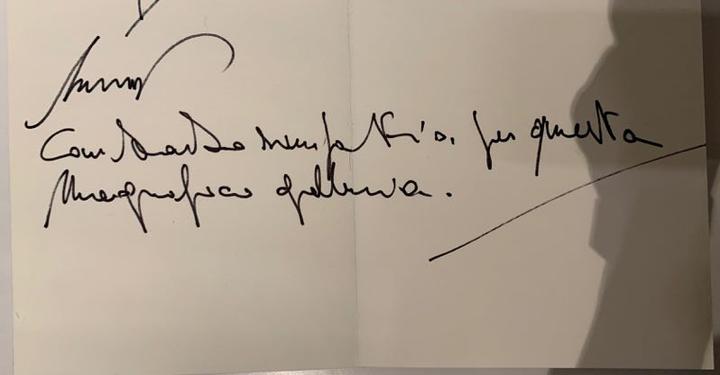 Con tanta simpatia. per questa
Magnifica galleria.